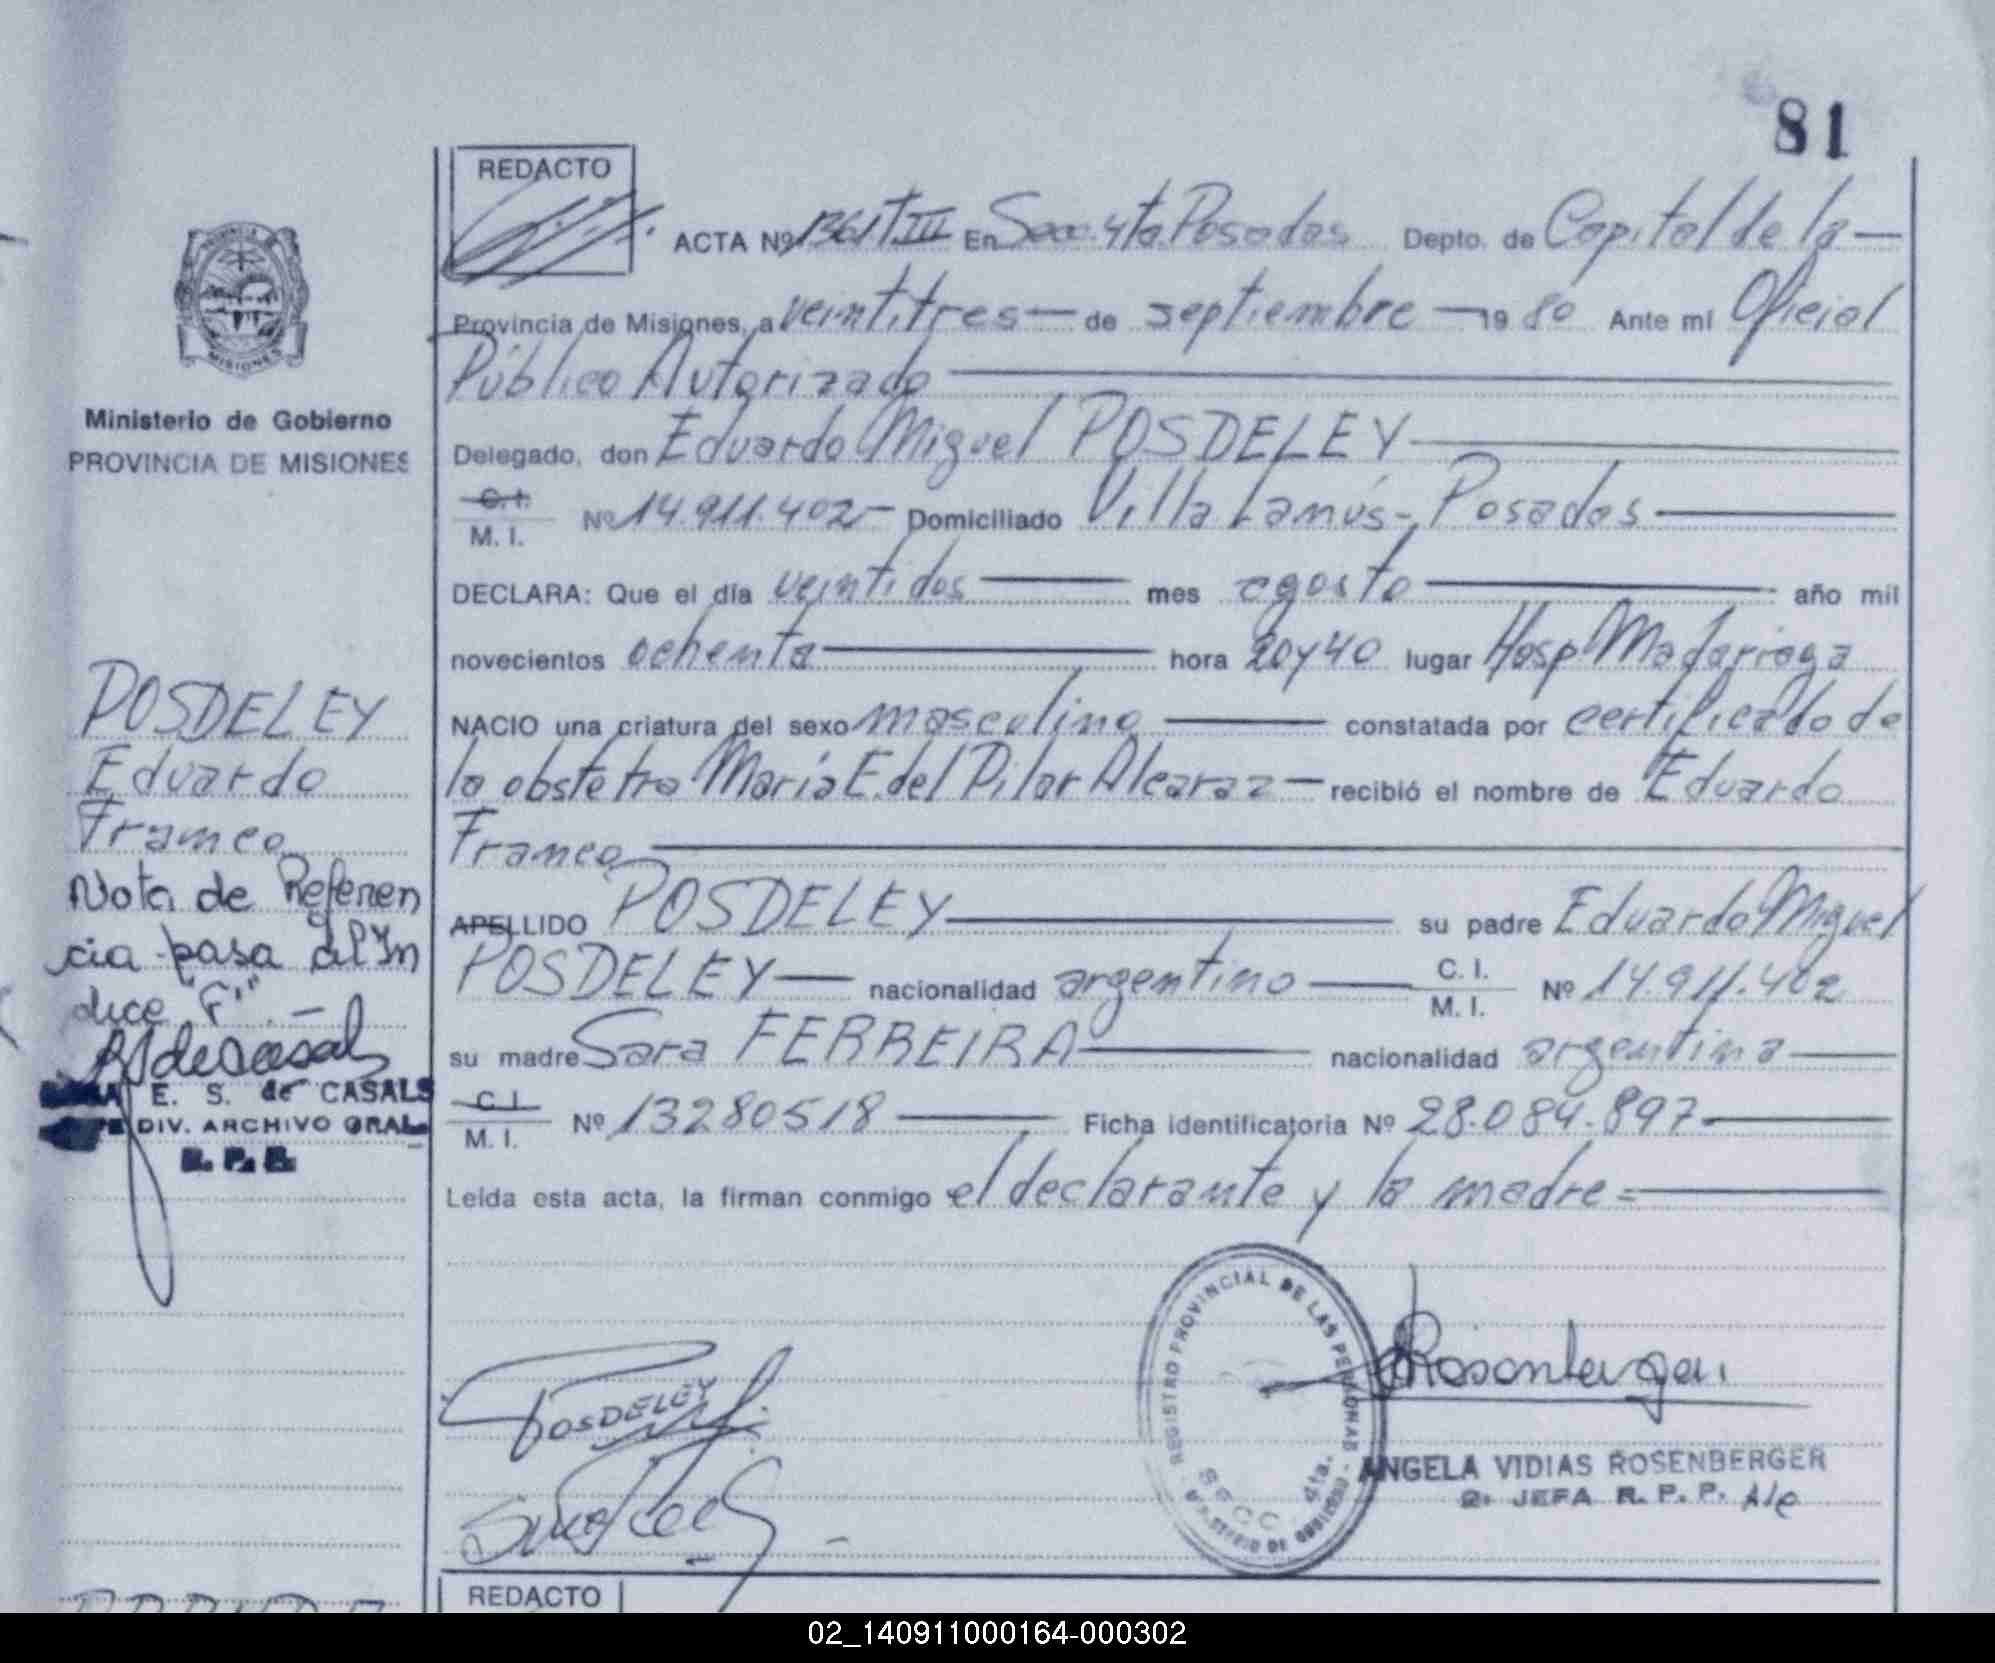 81
REDACTO
ACTA Nº 1361 T.III En Secc. 4ta. Posadas Depto. de Capital de la
Provincia de Misiones, a veintitres de septiembre 1980 Ante mí Oficial
Público Autorizado
Delegado, don Eduardo Miguel POSDELEY
C.I.
M. I. Nº 14.911.402 Domiciliado Villa Lanús-, Posadas
DECLARA: Que el día veintidos mes agosto año mil
novecientos ochenta hora 20y40 lugar Hosp Madariaga
NACIO una criatura del sexo masculino constatada por certificado de
la obstetra María E. del Pilar Alcaraz recibió el nombre de Eduardo
Franco
APELLIDO POSDELEY su padre Eduardo Miguel
POSDELEY nacionalidad argentino C. I.
M. I. Nº 14.911.402
su madre Sara FERREIRA nacionalidad argentina
C. I.
M. I. Nº 13280518 Ficha identificatoria Nº 28.084.897
Leída esta acta, la firman conmigo el declarante y la madre=
PROVINCIA DE
MISIONES
Ministerio de Gobierno
PROVINCIA DE MISIONES
POSDELEY
Eduardo
Franco
Nota de Referen
cia pasa al In
dice "F". -
E. S. de CASALS
DIV. ARCHIVO GRAL.
R. P. P.
POSDELEY
REGISTRO PROVINCIAL DE LAS PERSONAS
SECC. 4ta.
MINISTERIO DE GOBIERNO
Rosenberger
ANGELA VIDIAS ROSENBERGER
2. JEFA R. P. P. A/c
REDACTO
02_140911000164-000302